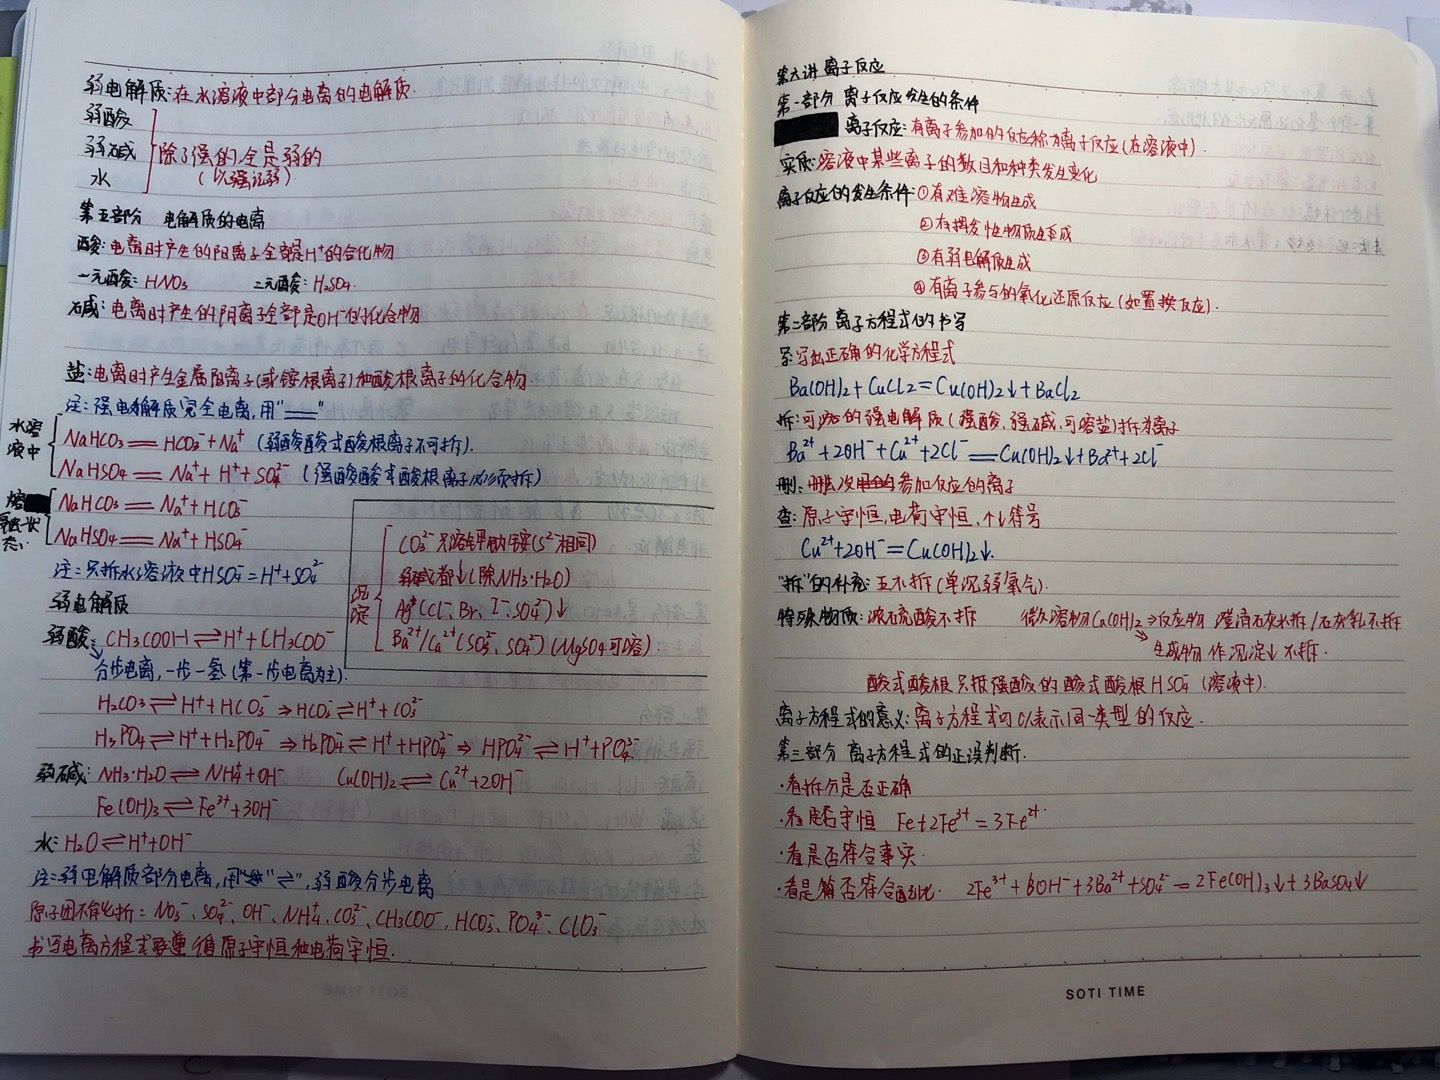 弱电解质:在水溶液中部分电离的电解质.
弱酸
弱碱
水
除了强的,全是弱的
(以强记弱)
第五部分 电解质的电离
酸:电离时产生的阳离子全部是H⁺的合化物
一元酸:HNO₃ 二元酸:H₂SO₄.
碱:电离时产生的阴离子全部是OH⁻的化合物
盐:电离时产生金属阳离子(或铵根离子)和酸根离子的化合物.
注:强电解质完全电离,用"══"
水溶液中
NaHCO₃══HCO₃⁻+Na⁺ (弱酸酸式酸根离子不可拆).
NaHSO₄══Na⁺+H⁺+SO₄²⁻ (强酸酸式酸根离子必须拆)
NaHCO₃══Na⁺+HCO₃⁻
NaHSO₄══Na⁺+HSO₄⁻
注:只拆水溶液中HSO₄⁻=H⁺+SO₄²⁻
沉淀
CO₃²⁻只溶钾钠铵(S²⁻相同)
弱碱都↓(除NH₃·H₂O)
Ag⁺(Cl⁻、Br⁻、I⁻、SO₄²⁻)↓
Ba²⁺/Ca²⁺(SO₃²⁻、SO₄²⁻)(MgSO₄可溶).
弱电解质
弱酸:CH₃COOH⇌H⁺+CH₃COO⁻
分步电离,一步一氢(第一步电离为主).
H₂CO₃⇌H⁺+HCO₃⁻→HCO₃⁻⇌H⁺+CO₃²⁻
H₃PO₄⇌H⁺+H₂PO₄⁻⇒H₂PO₄⁻⇌H⁺+HPO₄²⁻⇒HPO₄²⁻⇌H⁺+PO₄³⁻
弱碱:NH₃·H₂O⇌NH₄⁺+OH⁻ Cu(OH)₂⇌Cu²⁺+2OH⁻
Fe(OH)₃⇌Fe³⁺+3OH⁻
水:H₂O⇌H⁺+OH⁻
注:弱电解质部分电离,用"⇌",弱酸分步电离
原子团不能拆:NO₃⁻、SO₄²⁻、OH⁻、NH₄⁺、CO₃²⁻、CH₃COO⁻、HCO₃⁻、PO₄³⁻、ClO₃⁻
书写电离方程式要遵循原子守恒和电荷守恒.
第六讲 离子反应
第一部分 离子反应发生的条件
离子反应:有离子参加的反应称为离子反应(在溶液中).
实质:溶液中某些离子的数目和种类发生变化
离子反应的发生条件:①有难溶物生成
②有挥发性物质生成
③有弱电解质生成
④有离子参与的氧化还原反应(如置换反应).
第二部分 离子方程式的书写
写:写出正确的化学方程式
Ba(OH)₂+CuCl₂=Cu(OH)₂↓+BaCl₂
拆:可溶的强电解质(强酸、强碱、可溶盐)拆为离子
Ba²⁺+2OH⁻+Cu²⁺+2Cl⁻══Cu(OH)₂↓+Ba²⁺+2Cl⁻
删:删去没参加反应的离子
查:原子守恒,电荷守恒,↑↓符号
Cu²⁺+2OH⁻=Cu(OH)₂↓.
"拆"的补充:五不拆(单沉弱氧气).
特殊物质:浓硫酸不拆 微溶物Ca(OH)₂→反应物 澄清石灰水拆/石灰乳不拆
生成物 作沉淀↓不拆.
酸式酸根只拆强酸的酸式酸根HSO₄⁻(溶液中).
离子方程式的意义:离子方程式可以表示同一类型的反应.
第三部分 离子方程式的正误判断.
·看拆分是否正确
·看是否守恒 Fe+2Fe³⁺=3Fe²⁺
·看是否符合事实.
·看是否符合配比. 2Fe³⁺+6OH⁻+3Ba²⁺+SO₄²⁻=2Fe(OH)₃↓+3BaSO₄↓
SOTI TIME